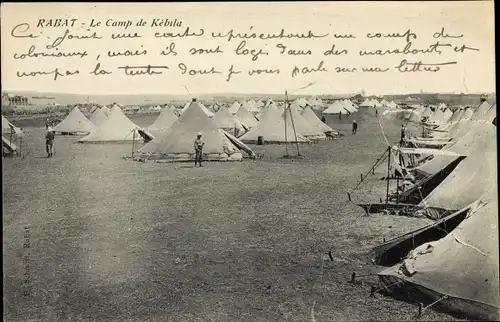 RABAT - Le Camp de Kébila
Ci joint une carte représentant un camp de
coloniaux, mais ils sont logé dans des marabouts et
non pas la tente dont je vous parle sur ma lettre
Rabat